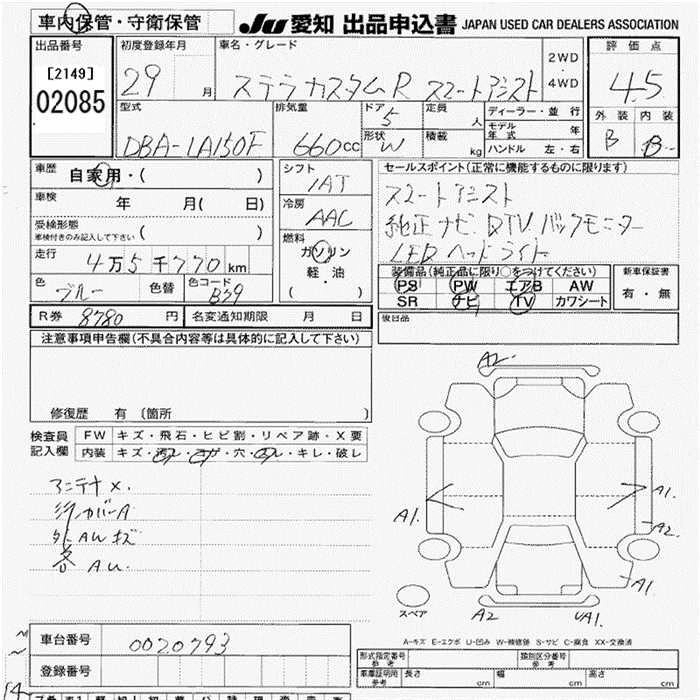 車内保管・守衛保管 JU愛知 出品申込書 JAPAN USED CAR DEALERS ASSOCIATION
出品番号 初度登録年月 車名・グレード 2WD 評価点
[2149] 29 月 ステラカスタムR スマートアシスト 4WD 4.5
02085 型式 排気量 ドア 5 定員 人 ディーラー・並行 外装 内装
モデル年式 年 B B
DBA-LA150F 660cc 形状 W 積載 kg ハンドル 左・右
車歴 自家用・( ) シフト セールスポイント(正常に機能するものに限ります)
IAT スマートアシスト
車検 年 月( 日) 冷房 純正ナビ DTV バックモニター
受検形態 車検付きのみ記入して下さい ( ) AAC LEDヘッドライト
走行 4万5千770km 燃料 ガソリン 装備品(純正品に限り○をつけてください) 新車保証書
色 ブルー 色替 色コード B79 軽・油 ( ) PS PW エアB AW 有・無
SR ナビ TV カワシート
R券 8780 円 名変通知期限 月 日 後日品
注意事項申告欄(不具合内容等は具体的に記入して下さい)
A2
修復歴 有 〔箇所 〕
検査員 FW キズ・飛石・ヒビ割・リペア跡・X要
記入欄 内装 キズ・汚レ・コゲ・穴・スレ・キレ・破レ
アンテナ×.
A1. A1.
A2
外AUキズ
各AU. A1.
スペア A2 A1.
A-キズ E-エクボ U-凹み W-補修跡 S-サビ C-腐食 XX-交換済
車台番号 0020793
形式指定番号 参考 類別区分番号 参考
登録番号 車庫証明用 参考 長さ cm 幅 cm 高さ cm